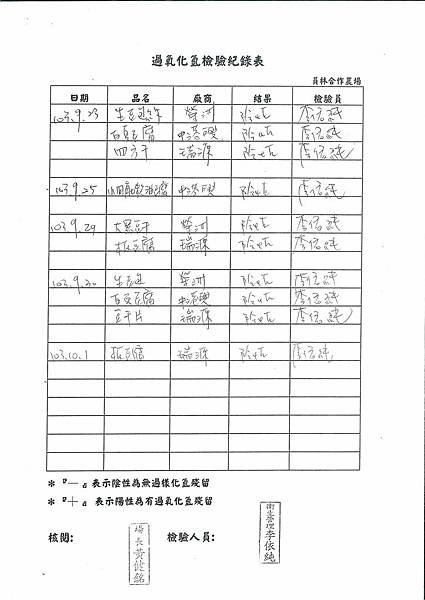 過氧化氫檢驗紀錄表
員林合作農場
日期 品名 廠商 結果 檢驗員
103.9.23 榮洲 陰性 李依純
百頁豆腐 中港興 陰性 李依純
四方干 瑞源 陰性 李依純
103.9.25 陰性 李依純
103.9.29 大黑豆干 榮洲 陰性 李依純
板豆腐 瑞源 陰性 李依純
103.9.30 榮洲 陰性 李依純
百頁豆腐 陰性 李依純
豆干片 瑞源 陰性 李依純
103.10.1 板豆腐 瑞源 陰性 李依純
* 『一』表示陰性為無過樣化氫殘留
* 『十』表示陽性為有過氧化氫殘留
核閱: 場長黃健銘 檢驗人員: 衛生管理李依純